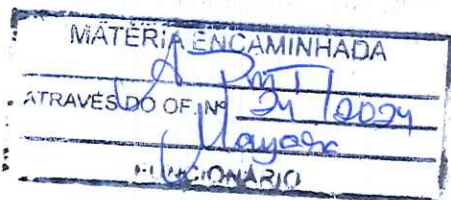 MATÉRIA ENCAMINHADA
A PMT
ATRAVÉS DO OF. Nº 24 / 2024
Mayara
FUNCIONÁRIO